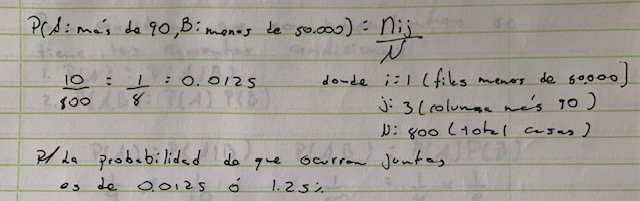 P(A: más de 90, B: menos de 50.000) = Nij/N
10/800 = 1/8 = 0.0125 donde i=1 (filas menos de 50.000)
j: 3 (columna más 90)
N: 800 (total casas)
R/ La probabilidad de que ocurran juntas
es de 0.0125 ó 1.25%